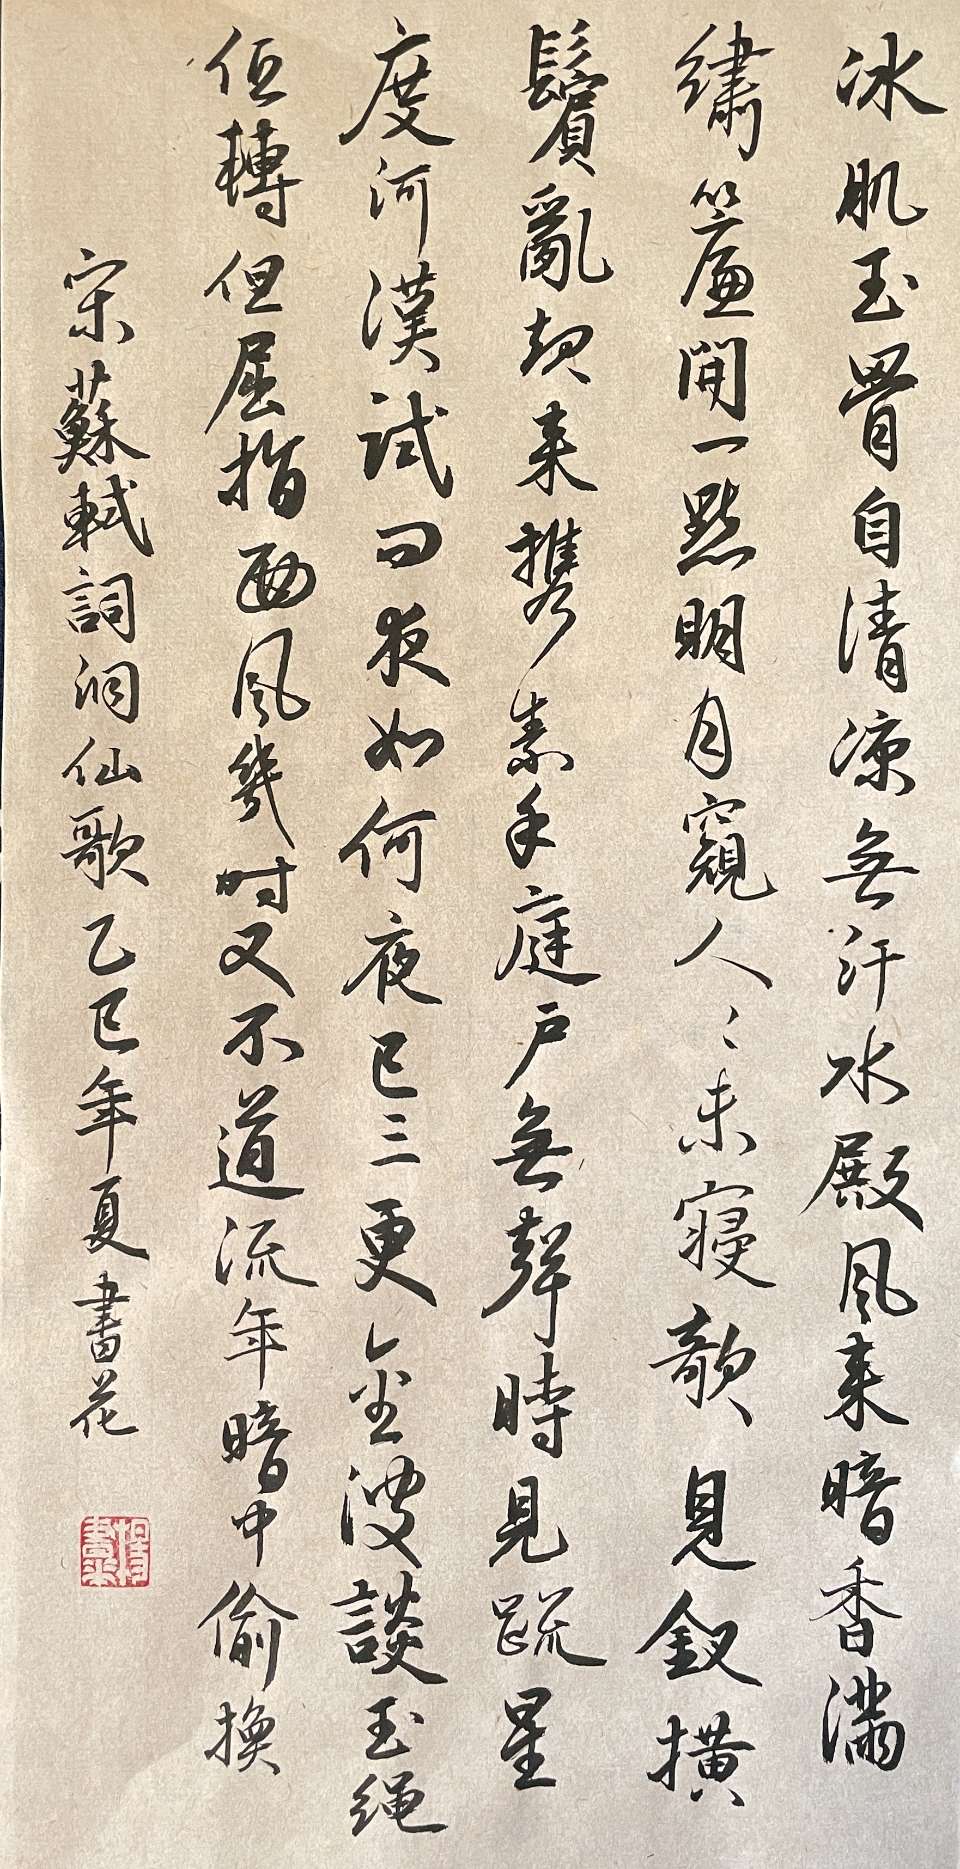 冰肌玉骨自清凉無汗水殿風来暗香滿
繡簾開一點明月窺人〻未寢欹見釵横
鬢亂起来携素手庭户無聲時見疏星
度河漢試問夜如何夜已三更金波談玉繩
低轉但屈指西風幾时又不道流年暗中偷換
宋蘇軾詞洞仙歌乙巳年夏書花